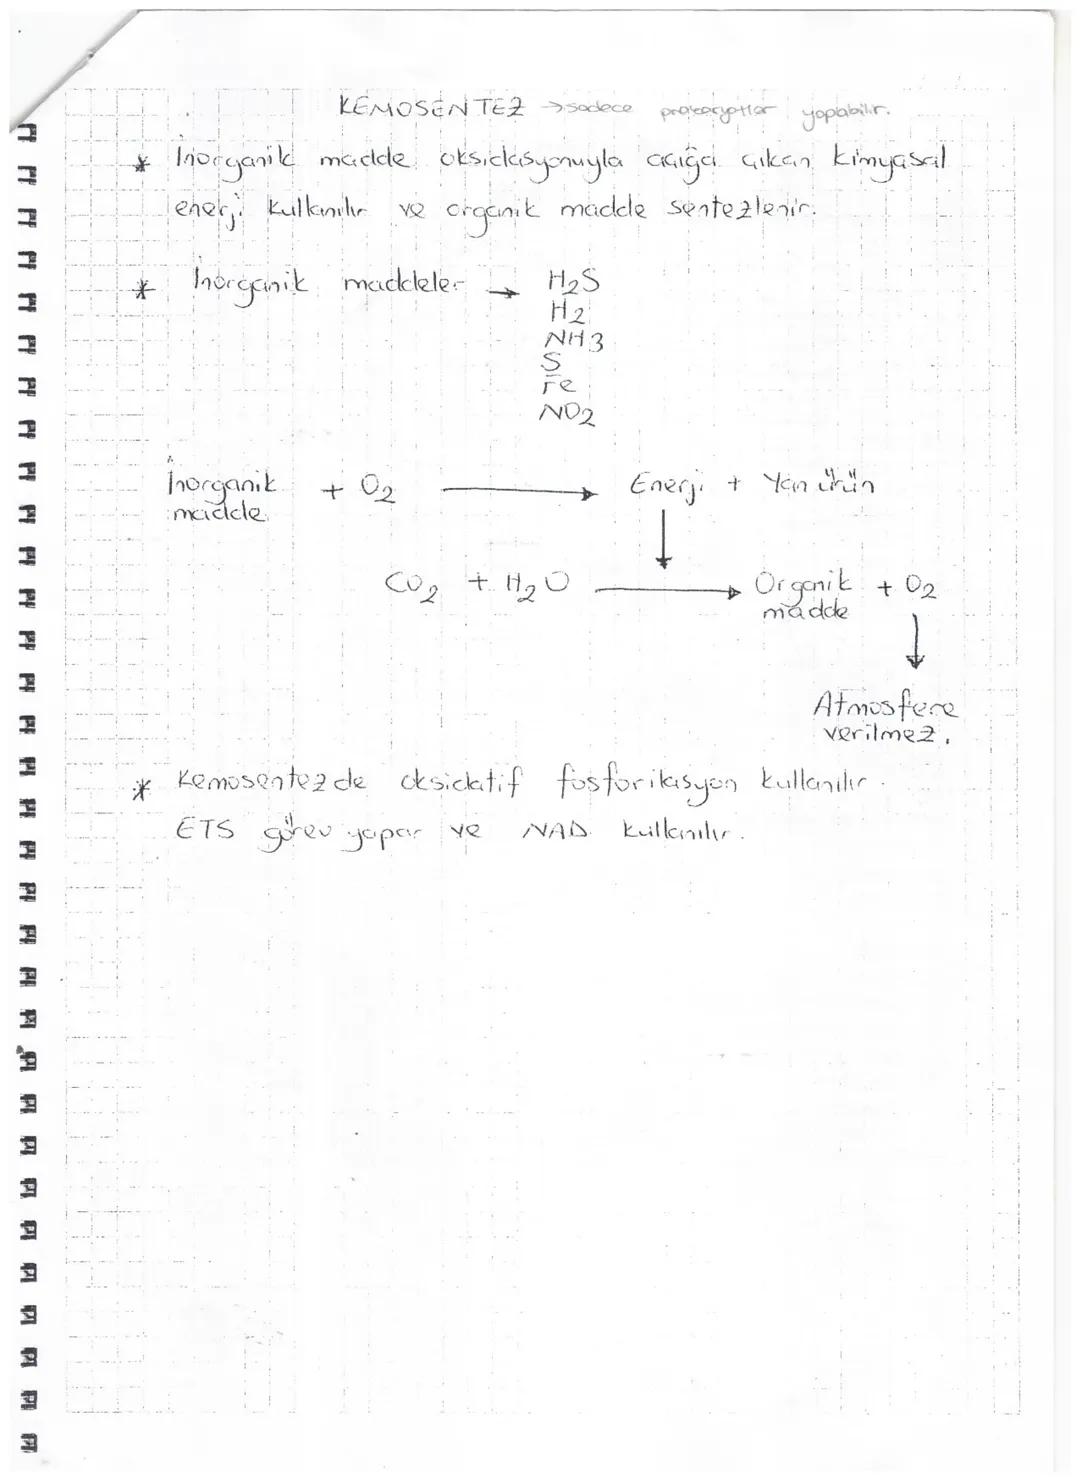 KEMOSENTEZ → sadece prokaryotlar yapabilir.
* İnorganik madde oksidasyonuyla açığa çıkan kimyasal
enerji kullanılır ve organik madde sentezlenir.
* İnorganik maddeler → H2S
H2
NH3
S
Fe
NO2
İnorganik + O2 → Enerji + Yan ürün
madde
CO2 + H2O → Organik + O2
madde
Atmosfere
verilmez.
* Kemosentezde oksidatif fosforilasyon kullanılır.
ETS görev yapar ve NAD kullanılır.